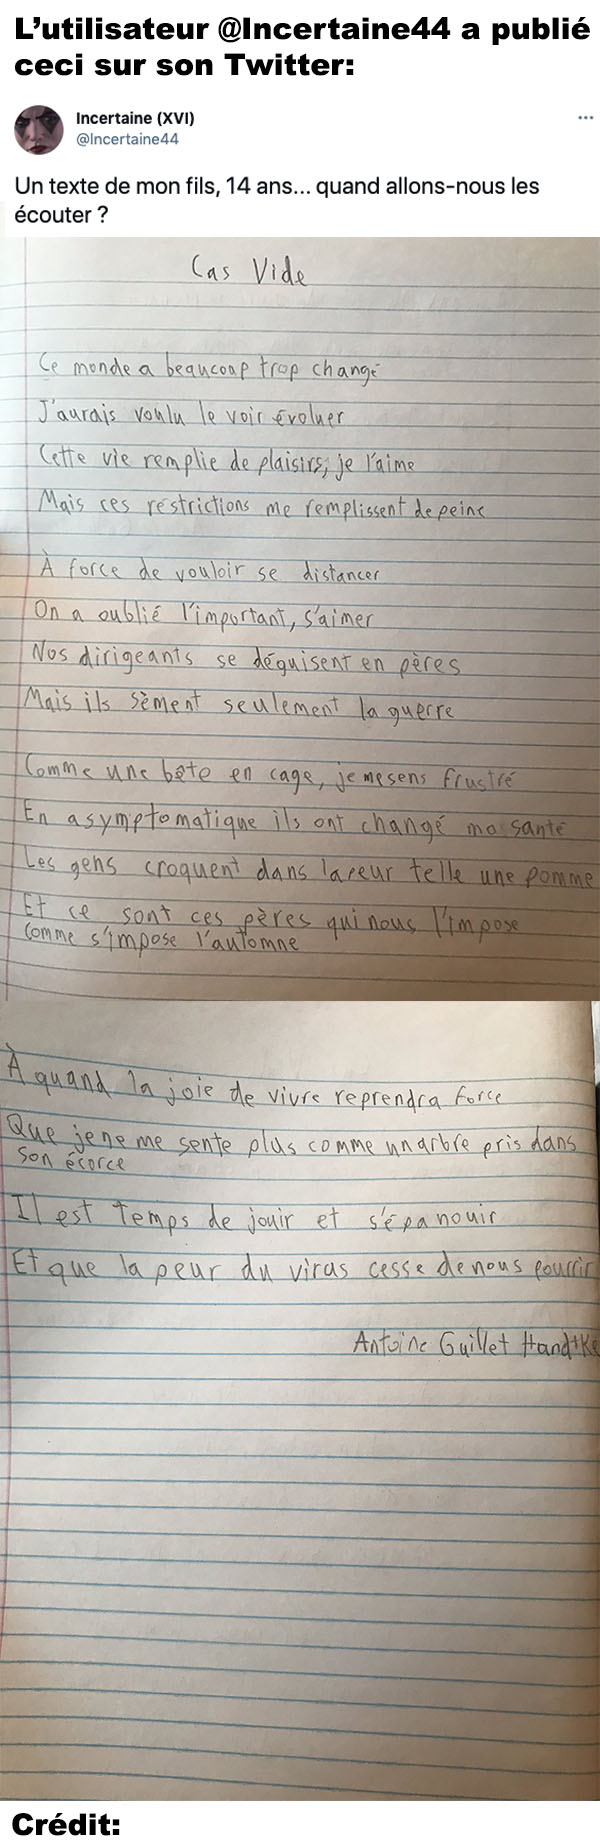 L’utilisateur @Incertaine44 a publié
ceci sur son Twitter:
Incertaine (XVI)
@Incertaine44
Un texte de mon fils, 14 ans... quand allons-nous les
écouter ?
Cas Vide
Ce monde a beaucoup trop changé
J'aurais voulu le voir évoluer
Cette vie remplie de plaisirs, je l'aime
Mais ces restrictions me remplissent de peine
À force de vouloir se distancer
On a oublié l'important, s'aimer
Nos dirigeants se déguisent en pères
Mais ils sèment seulement la guerre
Comme une bête en cage, je me sens frustré
En asymptomatique ils ont changé ma santé
Les gens croquent dans la peur telle une pomme
Et ce sont ces pères qui nous l'impose
Comme s'impose l'automne
À quand la joie de vivre reprendra force
Que je ne me sente plus comme un arbre pris dans
son écorce
Il est temps de jouir et s'épanouir
Et que la peur du virus cesse de nous pourrir
Antoine Guillet Handtke
Crédit: